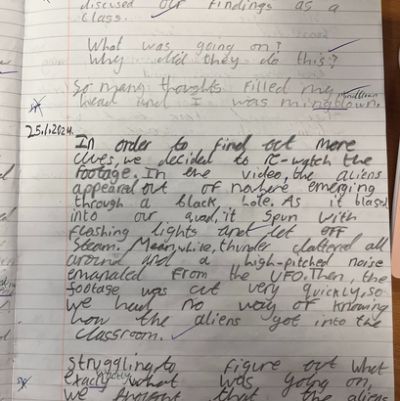 discused our findings as a
class.
What was going on?
Why did they do this?
So many thoughts filled my mindblown
head and I was mingblown.
25.1.2024.
In order to find out more
clues, we decided to re-watch the
footage. In the video, the aliens
appeared out of nowhere emerging
through a black hole. As it biased
into our quad, it spun with
flashing lights and let off
Steam. Meanwhile, thunder clattered all
around and a high-pitched noise
emanated from the UFO. Then, the
footage was cut very quickly, so
we had no way of knowing
how the aliens got into the
classroom.
Struggling to figure out what
exacly what was going on,
we thought that the aliens